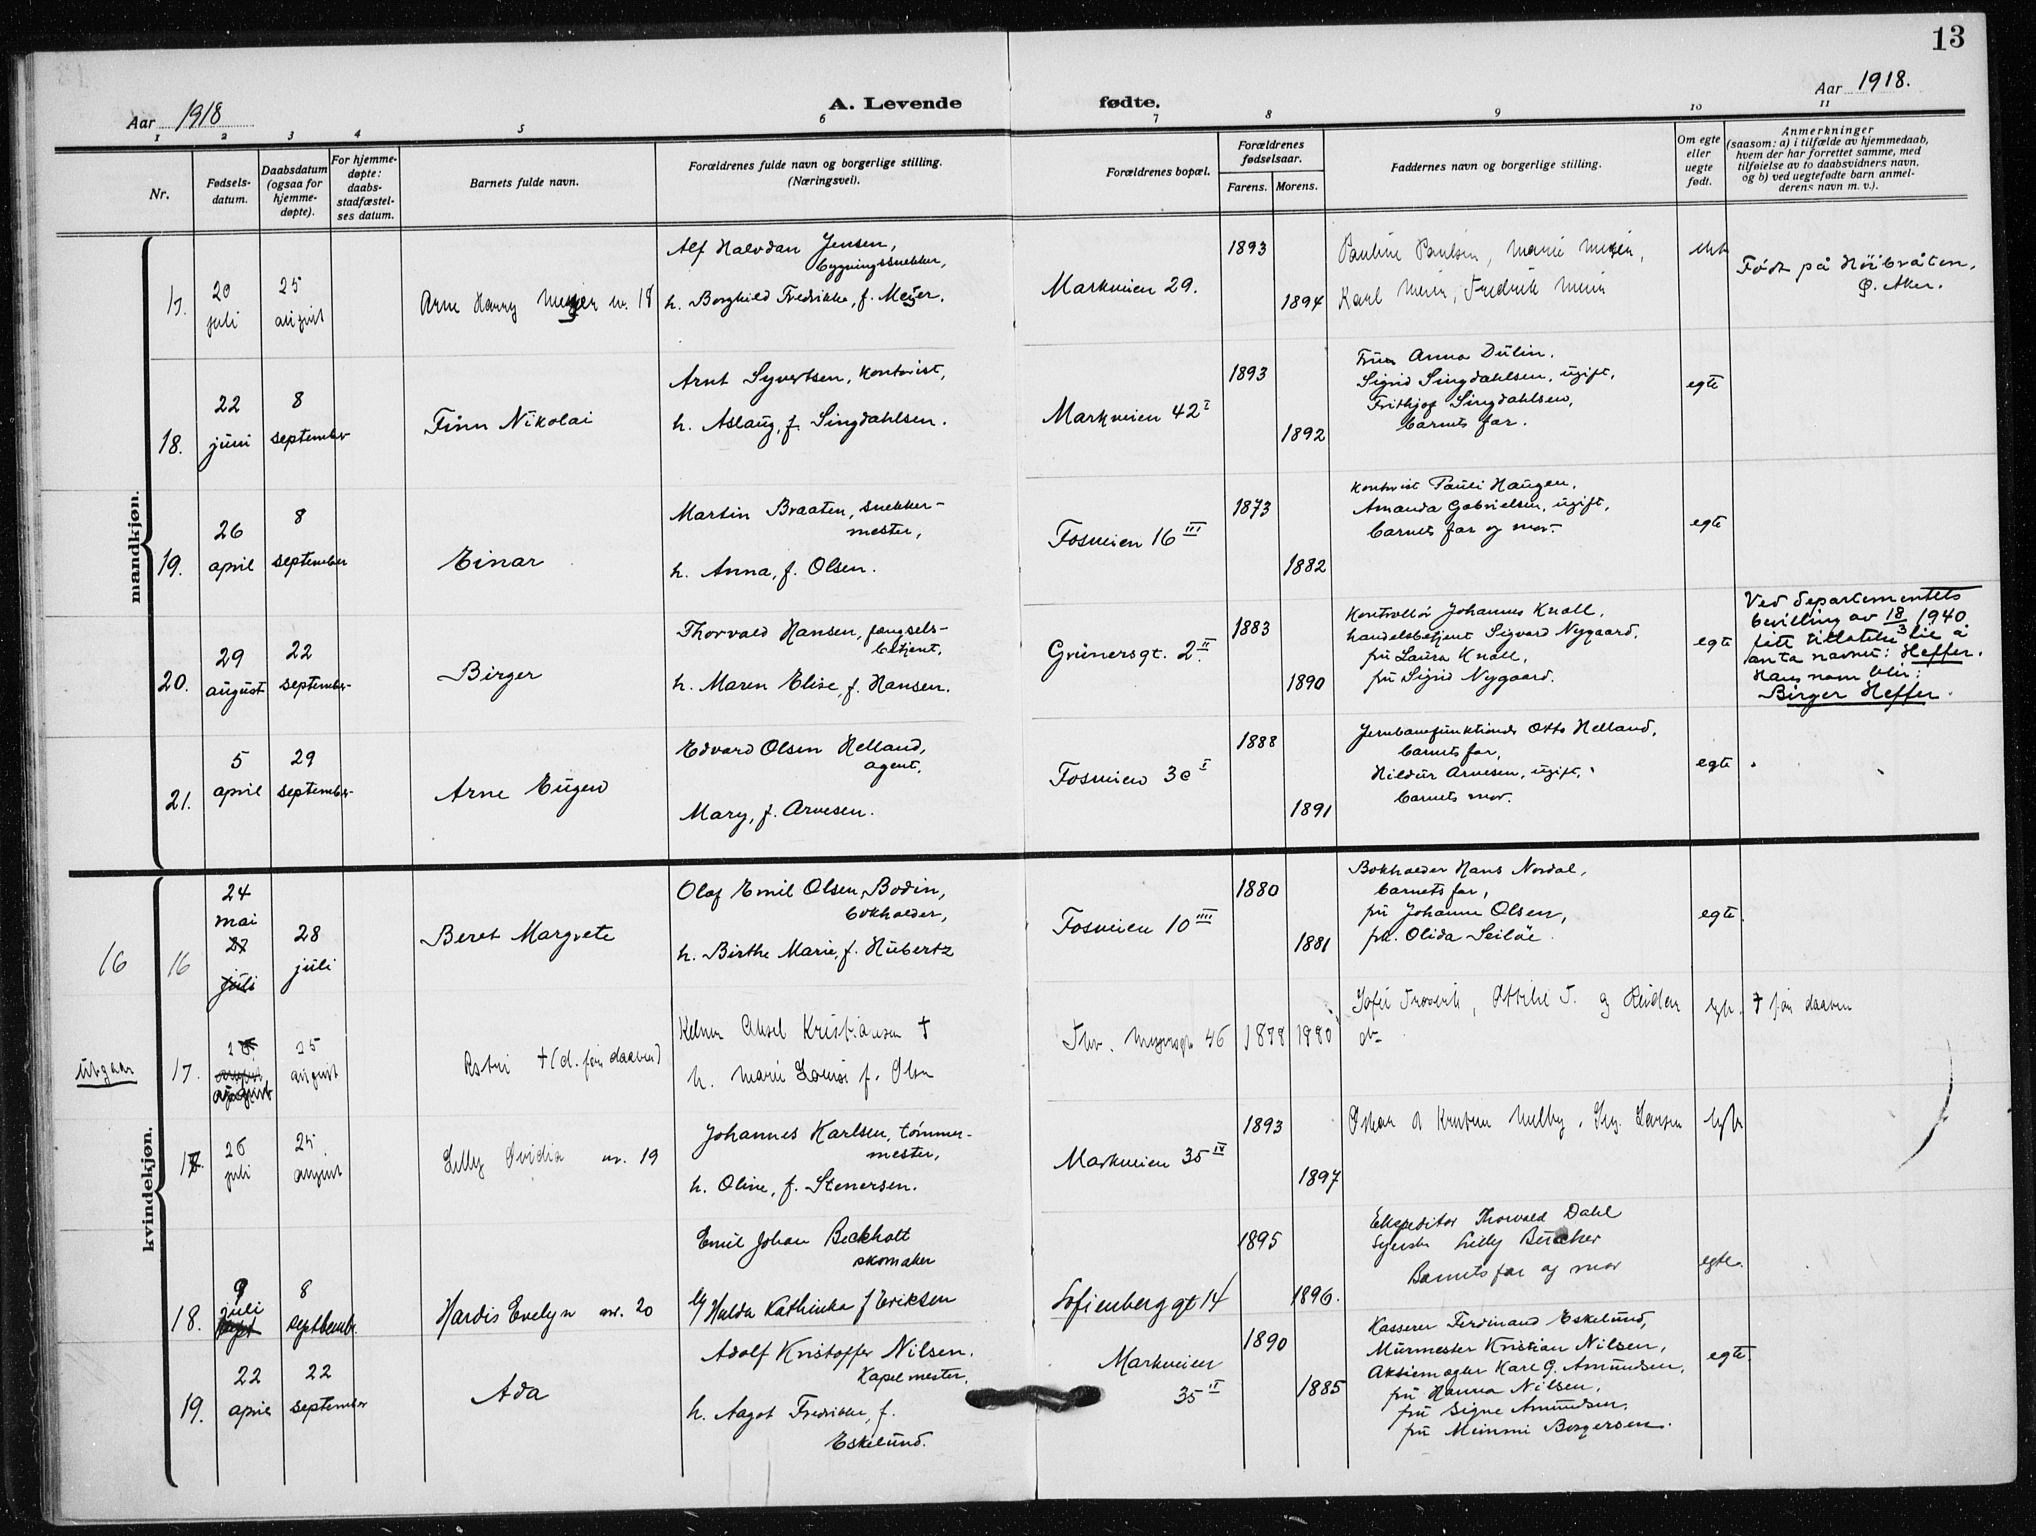 13
Aar 1918
A. Levende fødte.
Aar 1918.
1 2 3 4 5 6 7 8 9 10 11
Nr.
Fødsels-
datum.
Daabsdatum
(ogsaa for
hjemme-
døpte).
For hjemme-
døpte:
daabs-
stadfæstel-
ses datum.
Barnets fulde navn.
Forældrenes fulde navn og borgerlige stilling.
(Næringsvei).
Forældrenes bopæl.
Forældrenes
fødselsaar.
Farens. Morens.
Faddernes navn og borgerlige stilling.
Om egte
eller
uegte
født.
Anmerkninger
(saasom: a) i tilfælde av hjemmedaab,
hvem der har forrettet samme, med
tilføielse av to daabsvidners navn,
og b) ved uegtefødte barn anmel-
derens navn m. v.).
mandkjøn.
17.
20
juli
25
august
Arne Harry Meyer nr. 18
Alf Halvdan Jensen,
bygningssnekker,
h. Borghild Fredrikke, f. Meyer.
Markveien 29.
1893
1894
Pauline Paulsen, Marie
Karl Fredrik
Født på Höibråten,
Ø. Aker.
18.
22
juni
8
september
Finn Nikolai
Arnt Syvertsen, kontorist,
h. Aslaug, f. Singdahlsen.
Markveien 42 I
1893
1892
Frue Anna Dulin.
Sigrid Singdahlsen, ugift,
Frithjof Singdahlsen,
barnets far.
egte
19.
26
april
8
september
Einar
Martin Braaten, snekker-
mester,
h. Anna, f. Olsen.
Fosveien 16 III
1873
1882
Kontorist Pauli Haugen,
Amanda Gabrielsen, ugift,
barnets far og mor.
egte
20.
29
august
22
september
Birger
Thorvald Hansen, fængsels-
betjent,
h. Maren Elise, f. Hansen.
Grünersgt. 2 II
1883
1890
Kontrollör Johannes Knoll,
handelsbetjent Sigvard Nygaard,
fru Laura Knoll,
fru Sigrid Nygaard.
egte
Ved departementets
bevilling av 18/3 1940
anta navnet: Heffer.
Hans navn blir:
Birger Heffer.
21.
5
april
29
september
Arne Eugen
Edvard Olsen Helland,
agent,
Mary, f. Arvesen.
Fosveien 30 I
1888
1891
Jernbanefunktionær Otto Helland,
barnets far,
Hildur Arvesen, ugift,
barnets mor.
egte
kvindekjøn.
16
16
24
mai
27
juli
28
juli
Beret Margrete
Olaf Emil Olsen Bodin,
bokholder,
h. Birthe Marie, f. Hubertz
Fosveien 10 IIII
1880
1881
Bokholder Hans Nordal,
barnets far,
fru Johanne Olsen,
frk. Olida Seilöe.
egte.
Utgaar
17.
august
25
august
Astri † (d. før daaben)
Kelner Aksel Kristiansen †
h. Marie Louise f. Olsen
Thv. Meyersgt 46
1878
1880
† før daaben
17
26
juli
25
august
Lilly Ovidia nr. 19
Johannes Karlsen, tømmer-
mester,
h. Oline, f. Stenersen.
Markveien 35 IV
1893
1897
18.
9
juli
8
septbembr.
Hardis Evelyn nr. 20
Emil Johan Beckholt
skomaker
Hulda Kathinka f Eriksen
Sofienberg gt 14
1895
1896.
Ekspeditør Thorvald Dahl
Lilly
Barnets far og mor
egte.
19.
22
april
22
september
Ada
Adolf Kristoffer Nilsen,
Kapelmester,
h. Aagot Fredrikke, f.
Eskelund.
Markveien
35 II
1890
1885
Kasserer Ferdinand Eskelund,
Murmester Kristian Nilsen,
Aksiemægler Karl G. Amundsen,
fru Hanna Nilsen,
fru Signe Amundsen,
fru Mimmi Borgersen.
egte.